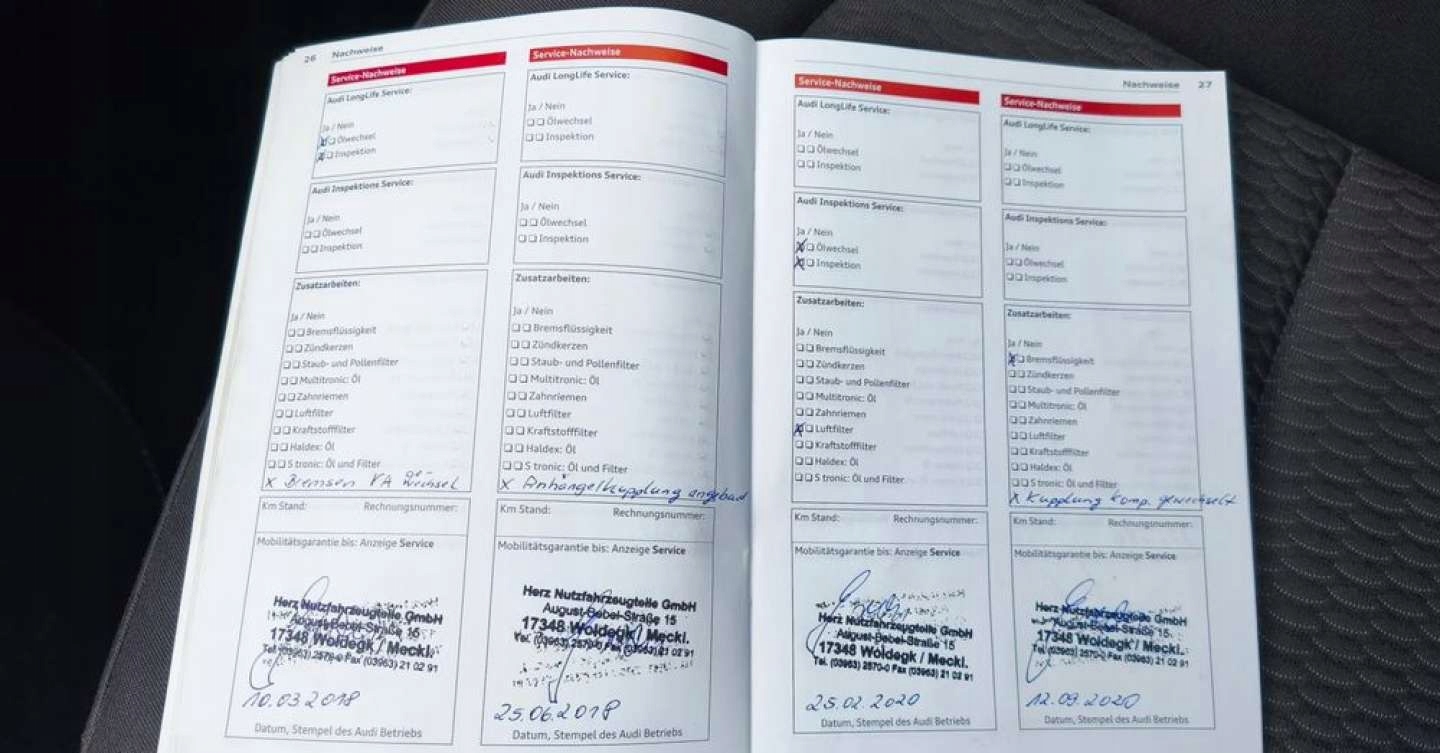 26 Nachweise
Service-Nachweise
Audi LongLife Service:
Ja / Nein
Ölwechsel
Inspektion
Audi Inspektions Service:
Ja / Nein
Ölwechsel
Inspektion
Zusatzarbeiten:
Ja / Nein
Bremsflüssigkeit
Zündkerzen
Staub- und Pollenfilter
Multitronic: Öl
Zahnriemen
Luftfilter
Kraftstofffilter
Haldex: Öl
S tronic: Öl und Filter
x Bremsen VA ge-
wechsel
Km Stand: Rechnungsnummer:
Mobilitätsgarantie bis: Anzeige Service
Herz Nutzfahrzeugteile GmbH
August-Bebel-Straße 15
17348 Woldegk / Meckl.
Tel. (03963) 2570-0 Fax (03963) 21 02 91
10.03.2018
Datum, Stempel des Audi Betriebs
Service-Nachweise
Audi LongLife Service:
Ja / Nein
Ölwechsel
Inspektion
Audi Inspektions Service:
Ja / Nein
Ölwechsel
Inspektion
Zusatzarbeiten:
Ja / Nein
Bremsflüssigkeit
Zündkerzen
Staub- und Pollenfilter
Multitronic: Öl
Zahnriemen
Luftfilter
Kraftstofffilter
Haldex: Öl
S tronic: Öl und Filter
x Anhängelkupplung angebaut
Km Stand: Rechnungsnummer:
Mobilitätsgarantie bis: Anzeige Service
Herz Nutzfahrzeugteile GmbH
August-Bebel-Straße 15
17348 Woldegk / Meckl.
Tel. (03963) 2570-0 Fax (03963) 21 02 91
25.06.2018
Datum, Stempel des Audi Betriebs
Nachweise 27
Service-Nachweise
Audi LongLife Service:
Ja / Nein
Ölwechsel
Inspektion
Audi Inspektions Service:
Ja / Nein
Ölwechsel
Inspektion
Zusatzarbeiten:
Ja / Nein
Bremsflüssigkeit
Zündkerzen
Staub- und Pollenfilter
Multitronic: Öl
Zahnriemen
Luftfilter
Kraftstofffilter
Haldex: Öl
S tronic: Öl und Filter
Km Stand: Rechnungsnummer:
Mobilitätsgarantie bis: Anzeige Service
Herz Nutzfahrzeugteile GmbH
August-Bebel-Straße 15
17348 Woldegk / Meckl.
Tel. (03963) 2570-0 Fax (03963) 21 02 91
25.02.2020
Datum, Stempel des Audi Betriebs
Service-Nachweise
Audi LongLife Service:
Ja / Nein
Ölwechsel
Inspektion
Audi Inspektions Service:
Ja / Nein
Ölwechsel
Inspektion
Zusatzarbeiten:
Ja / Nein
Bremsflüssigkeit
Zündkerzen
Staub- und Pollenfilter
Multitronic: Öl
Zahnriemen
Luftfilter
Kraftstofffilter
Haldex: Öl
S tronic: Öl und Filter
x Kupplung komp. gewechselt
Km Stand: Rechnungsnummer:
Mobilitätsgarantie bis: Anzeige Service
Herz Nutzfahrzeugteile GmbH
August-Bebel-Straße 15
17348 Woldegk / Meckl.
Tel. (03963) 2570-0 Fax (03963) 21 02 91
12.09.2020
Datum, Stempel des Audi Betriebs